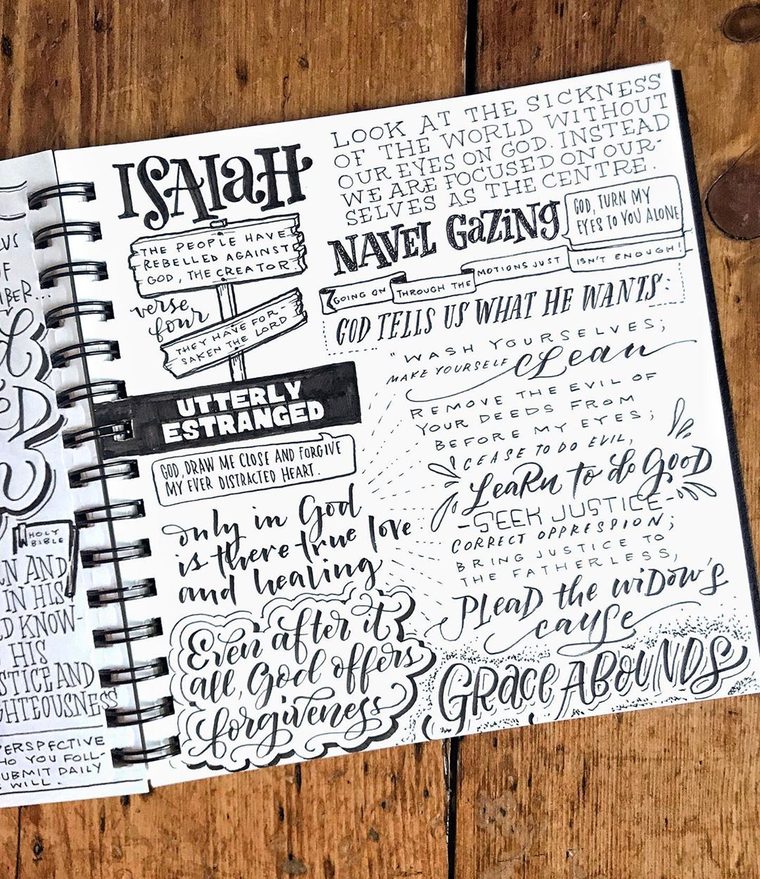 US
OF
BER...
HOLY
BIBLE
EN AND
IN HIS
D KNOW-
HIS
STICE AND
GHTEOUSNESS
PERSPECTIVE
HO YOU FOLL-
SUBMIT DAILY
WILL.
ISAIAH
THE PEOPLE HAVE
REBELLED AGAINST
GOD, THE CREATOR
verse
four
THEY HAVE FOR-
SAKEN THE LORD
UTTERLY
ESTRANGED
GOD, DRAW ME CLOSE AND FORGIVE
MY EVER DISTRACTED HEART.
only in God
is there true love
and healing
Even after it
all, God offers
forgiveness
LOOK AT THE SICKNESS
OF THE WORLD WITHOUT
OUR EYES ON GOD. INSTEAD
WE ARE FOCUSED ON OUR-
SELVES AS THE CENTRE.
NAVEL GAZING
GOD, TURN MY
EYES TO YOU ALONE
GOING ON THROUGH THE MOTIONS JUST ISN'T ENOUGH!
GOD TELLS US WHAT HE WANTS:
"WASH YOURSELVES;
MAKE YOURSELF CLEAN
REMOVE THE EVIL OF
YOUR DEEDS FROM
BEFORE MY EYES;
CEASE TO DO EVIL,
LEARN to do GOOD
-SEEK JUSTICE-
CORRECT OPPRESSION;
BRING JUSTICE TO
THE FATHERLESS,
PLEAD the WIDOW'S
cause
GRACE ABOUNDS